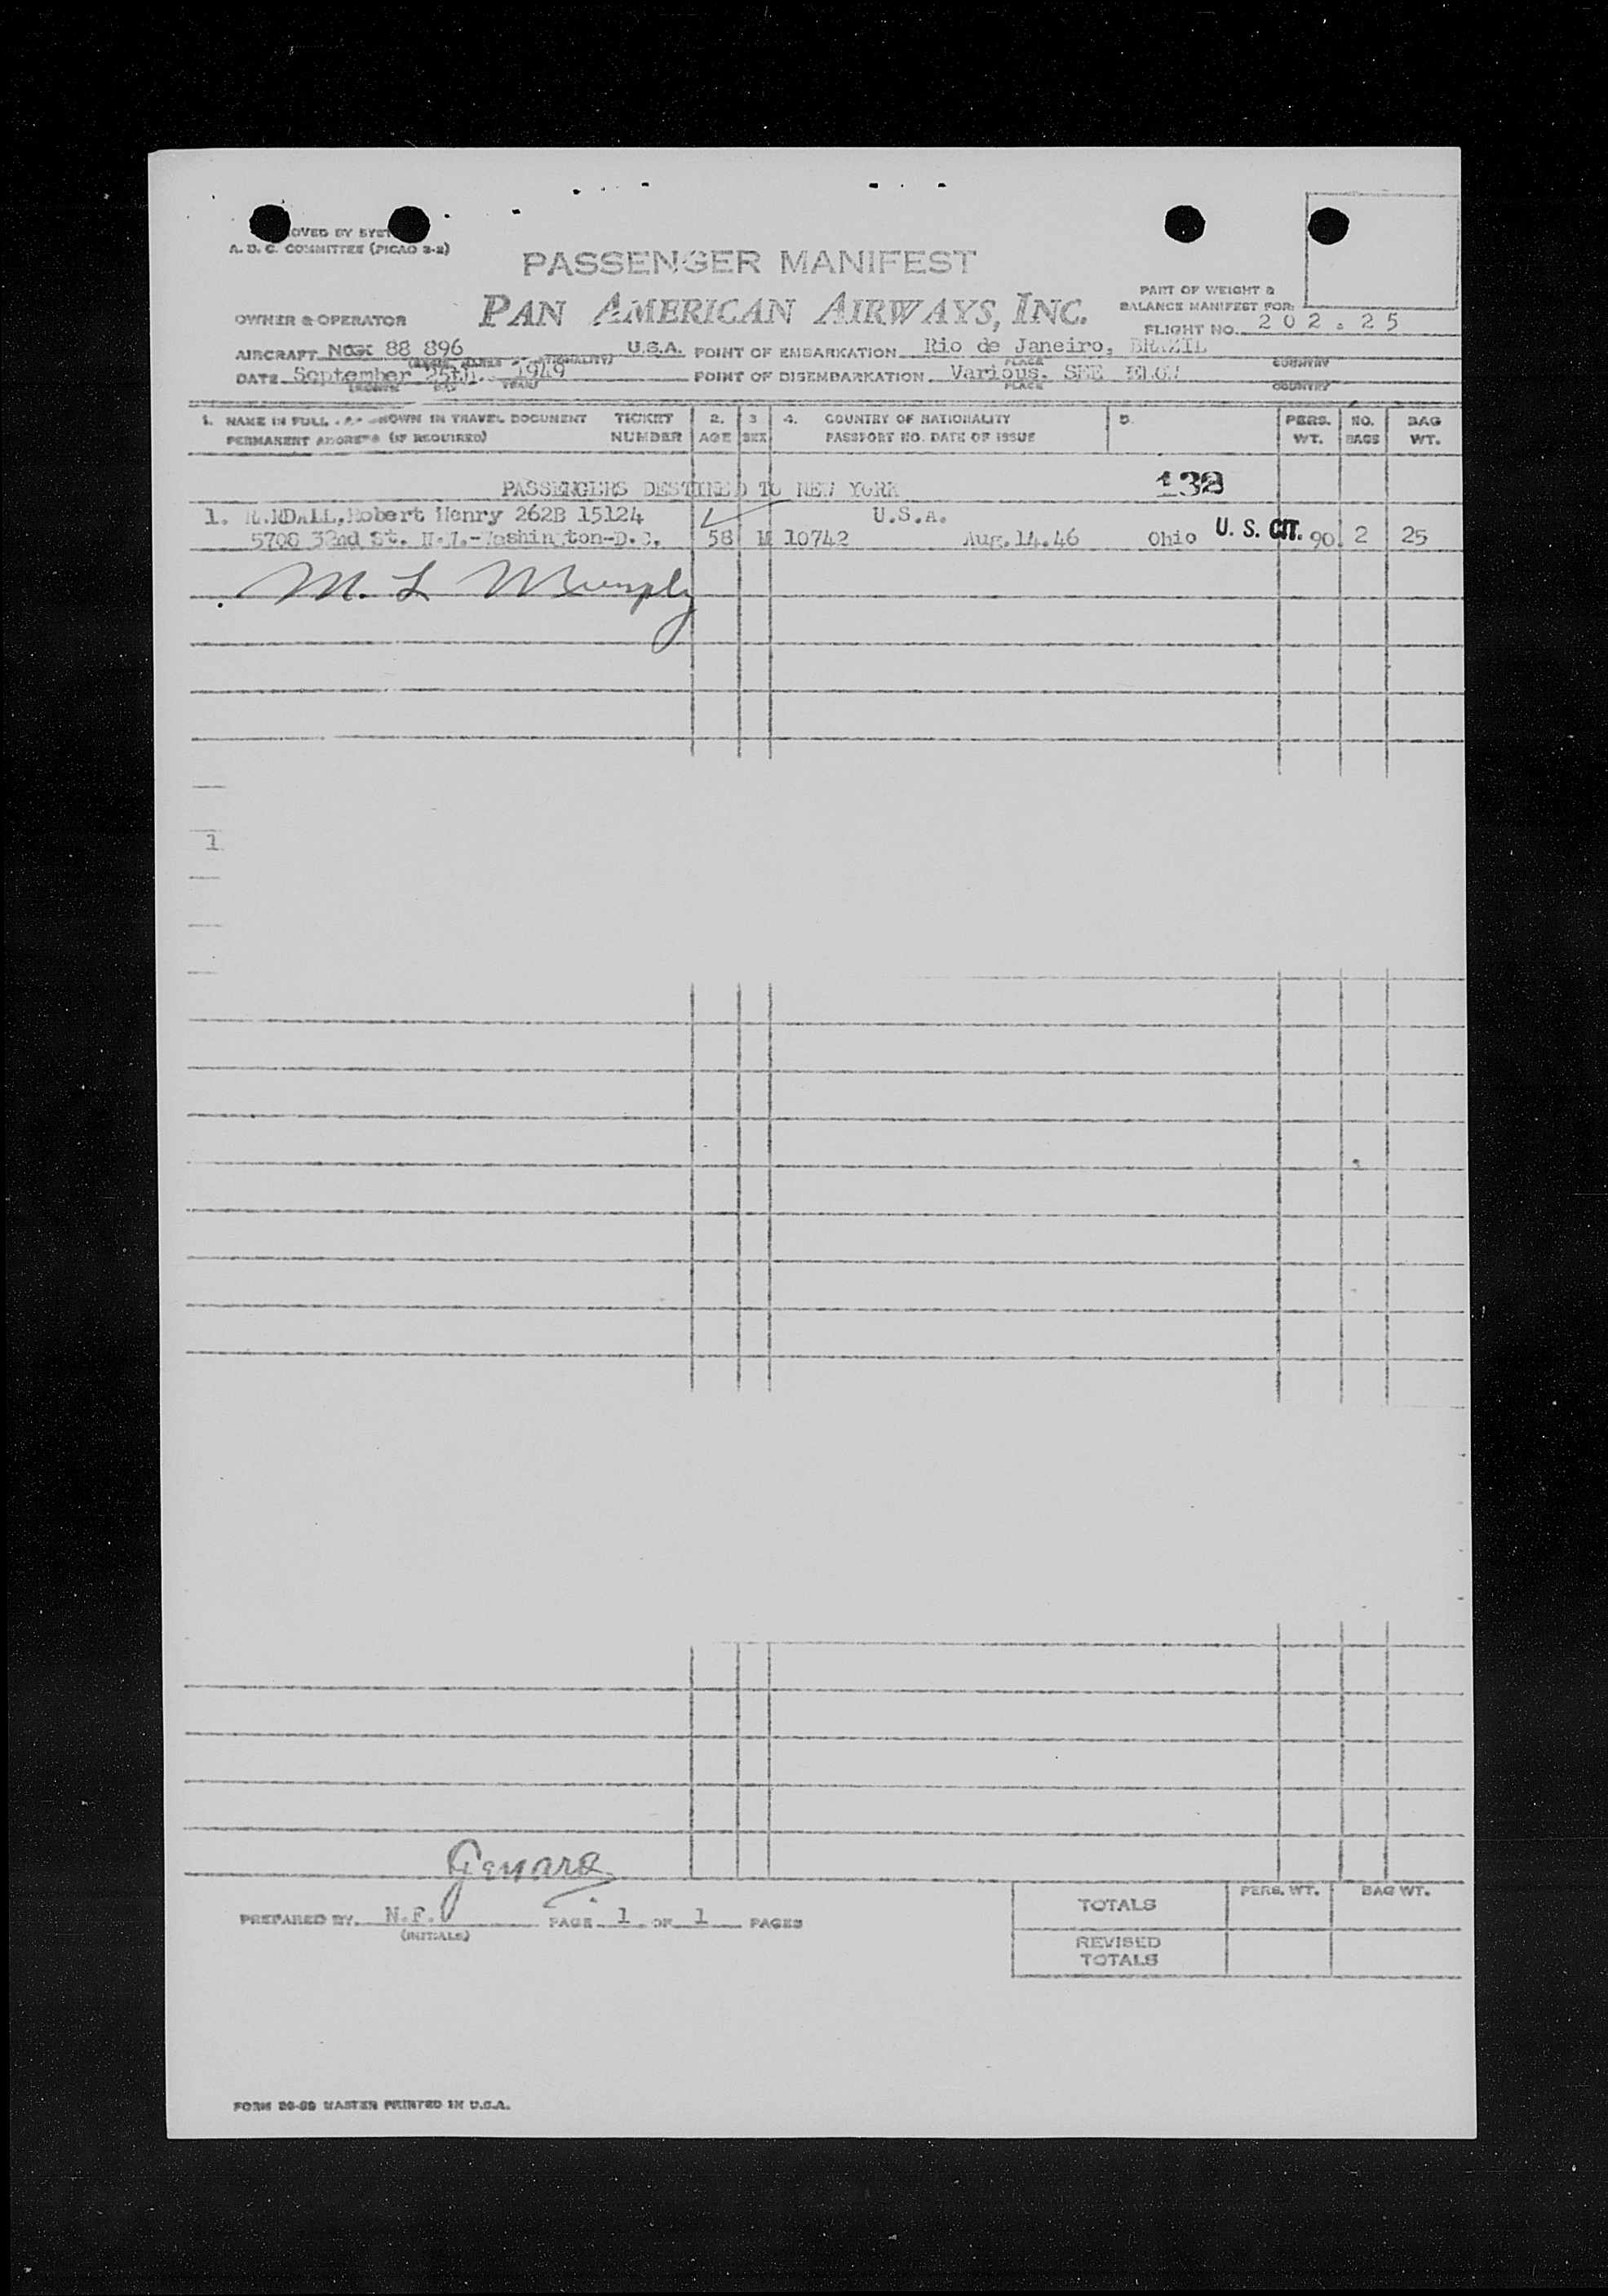 OVED BY SYST
A. D. C. COMMITTEE (PICAO 2-2)
PASSENGER MANIFEST
PAN AMERICAN AIRWAYS, INC.
PART OF WEIGHT &
BALANCE MANIFEST FOR:
OWNER & OPERATOR
FLIGHT NO. 202.25
AIRCRAFT 88 896 U.S.A. POINT OF EMBARKATION Rio de Janeiro, BRAZIL
PLACE COUNTRY
DATE September 25th. 1949 POINT OF DISEMBARKATION Various. SEE ELOW
MONTH DAY YEAR PLACE COUNTRY
1. NAME IN FULL AS SHOWN IN TRAVEL DOCUMENT TICKET 2. 3 4. COUNTRY OF NATIONALITY 5. PERS. NO. BAG
PERMANENT ADDRESS (IF REQUIRED) NUMBER AGE SEX PASSPORT NO. DATE OF ISSUE WT. BAGS WT.
PASSENGERS DESTINED TO NEW YORK 138
1. RANDALL, Robert Henry 262B 15124 U.S.A.
5708 32nd St. N.W.-Washington-D.C. 58 M 10742 Aug.14.46 Ohio U. S. CIT. 90 2 25
M. L Murphy
1
Genaro
PREPARED BY N.F. PAGE 1 OF 1 PAGES
(INITIALS)
TOTALS PERS. WT. BAG WT.
REVISED
TOTALS
FORM MASTER PRINTED IN U.S.A.